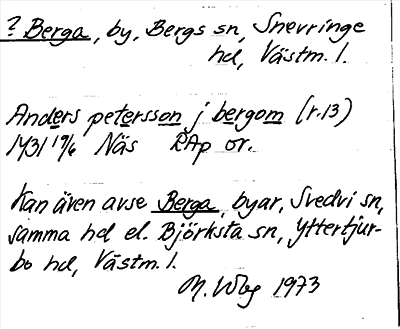 ? Berga, by, Bergs sn, Snevringe
hd, Västm. l.
Anders petersson j bergom (r.13)
1431 19/6 Näs RAp or.
Kan även avse Berga, byar, Svedvi sn,
samma hd el. Björksta sn, Yttertjur-
bo hd, Västm. l.
M. Wbg 1973